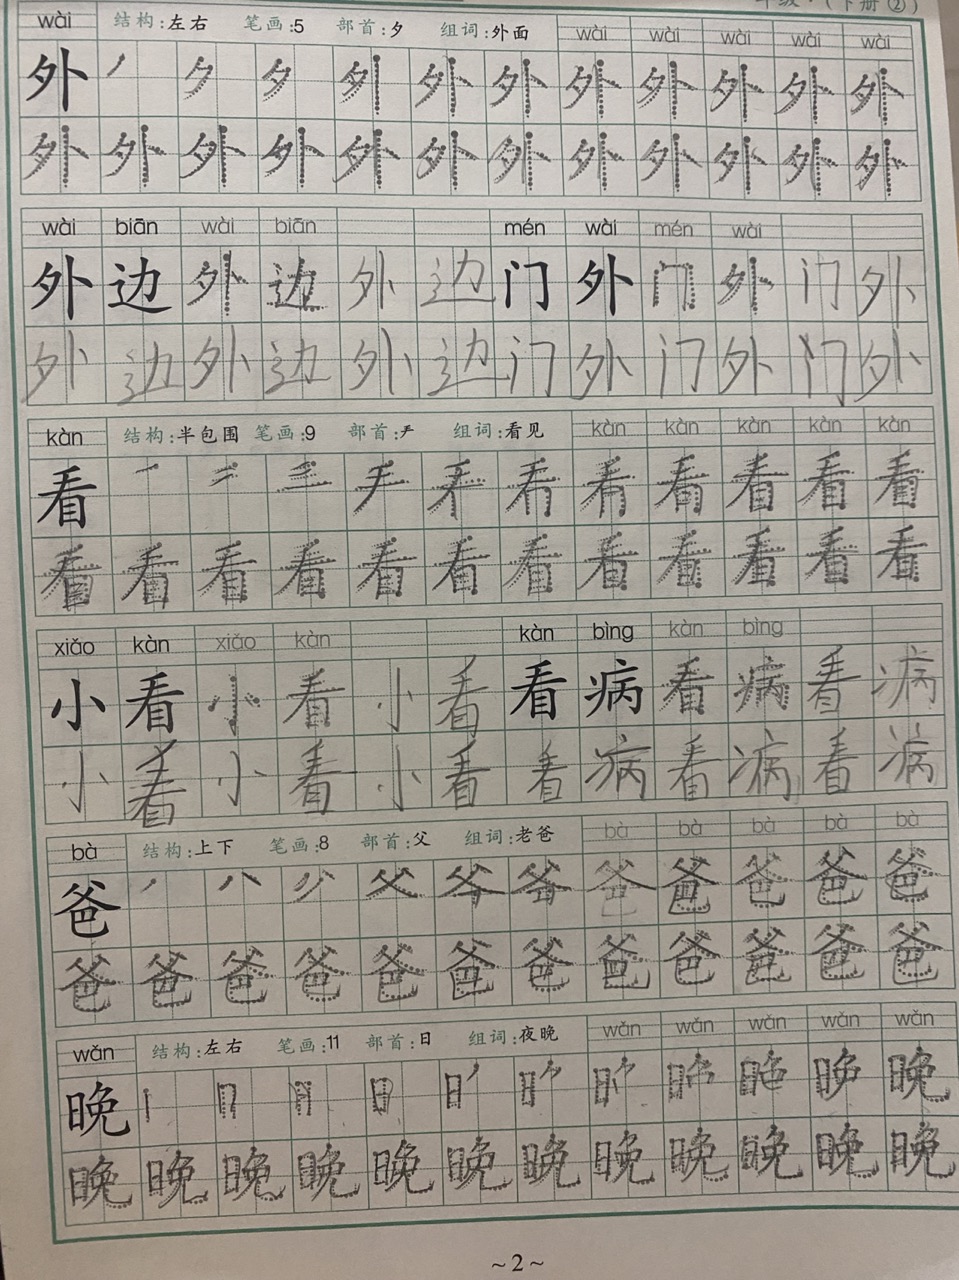 年级·(下册②)
wài 结构:左右 笔画:5 部首:夕 组词:外面 wài wài wài wài wài
外 丿 夕 夕 外 外 外 外 外 外 外
外 外 外 外 外 外 外 外 外 外 外 外
wài biān wài biān mén wài mén wài
外 边 外 边 外 边 门 外 门 外 门 外
外 边 外 边 外 边 门 外 门 外 门 外
kàn 结构:半包围 笔画:9 部首:龵 组词:看见 kàn kàn kàn kàn kàn
看 一 二 三 龵 看 看 看 看
看 看 看 看 看 看 看 看 看 看 看 看
xiǎo kàn xiǎo kàn kàn bìng kàn bìng
小 看 小 看 小 看 看 病 看 病 看 病
小 看 小 看 小 看 看 病 看 病 看 病
bà 结构:上下 笔画:8 部首:父 组词:老爸 bà bà bà bà bà
爸 丿 八 父 爸 爸 爸 爸 爸
爸 爸 爸 爸 爸 爸 爸 爸 爸 爸 爸 爸
wǎn 结构:左右 笔画:11 部首:日 组词:夜晚 wǎn wǎn wǎn wǎn wǎn
晚 丨 冂 日 日 晚
晚 晚 晚 晚 晚 晚 晚 晚 晚 晚 晚 晚
~2~